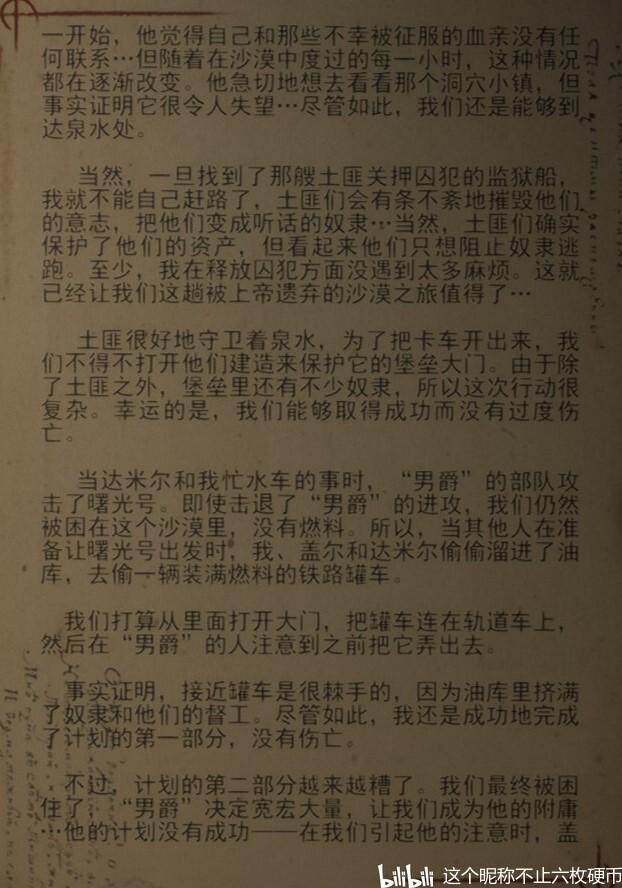 一开始，他觉得自己和那些不幸被征服的血亲没有任
何联系…但随着在沙漠中度过的每一小时，这种情况
都在逐渐改变。他急切地想去看看那个洞穴小镇，但
事实证明它很令人失望…尽管如此，我们还是能够到
达泉水处。
当然，一旦找到了那艘土匪关押囚犯的监狱船，
我就不能自己赶路了，土匪们会有条不紊地摧毁他们
的意志，把他们变成听话的奴隶…当然，土匪们确实
保护了他们的资产，但看起来他们只想阻止奴隶逃
跑。至少，我在释放囚犯方面没遇到太多麻烦。这就
已经让我们这趟被上帝遗弃的沙漠之旅值得了…
土匪很好地守卫着泉水，为了把卡车开出来，我
们不得不打开他们建造来保护它的堡垒大门。由于除
了土匪之外，堡垒里还有不少奴隶，所以这次行动很
复杂。幸运的是，我们能够取得成功而没有过度伤
亡。
当达米尔和我忙水车的事时，“男爵”的部队攻
击了曙光号。即使击退了“男爵”的进攻，我们仍然
被困在这个沙漠里，没有燃料。所以，当其他人在准
备让曙光号出发时，我、盖尔和达米尔偷偷溜进了油
库，去偷一辆装满燃料的铁路罐车。
我们打算从里面打开大门，把罐车连在轨道车上，
然后在“男爵”的人注意到之前把它弄出去。
事实证明，接近罐车是很棘手的，因为油库里挤满
了奴隶和他们的督工。尽管如此，我还是成功地完成
了计划的第一部分，没有伤亡。
不过，计划的第二部分越来越糟了。我们最终被困
住了，“男爵”决定宽宏大量，让我们成为他的附庸
…他的计划没有成功——在我们引起他的注意时，盖
bilibili 这个昵称不止六枚硬币